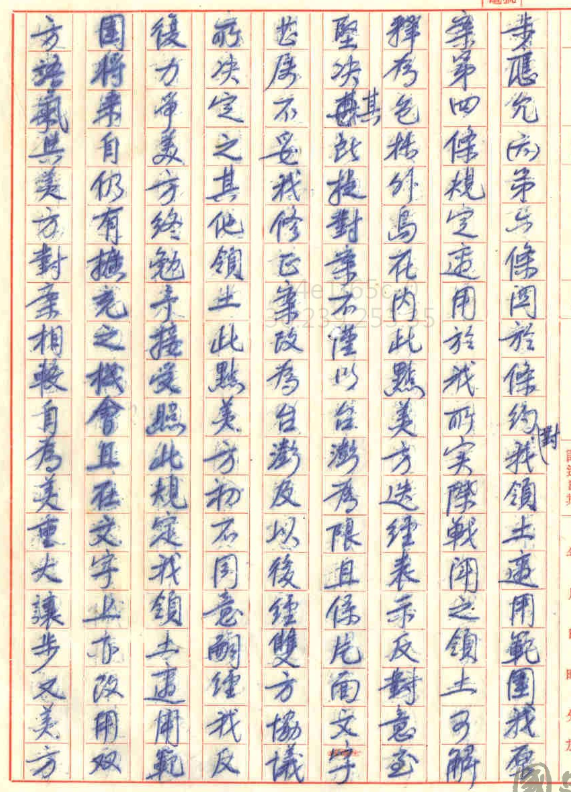 步應允(丙)第六條關於條約對我領土適用範圍我原
案第四條規定適用於我所實際戰鬥之領土可解
釋為包括外島在內此點美方迭經表示反對意至
堅決其所提對案不僅以台澎為限且係片面文字
甚屬不妥我修正案改為台澎及以後經雙方協議
所決定之其他領土此點美方初不同意嗣經我反
復力爭美方終勉予接受照此規定我領土適用範
圍將來自仍有擴充之機會且在文字上亦改用双
方語氣與美方對案相較自為美重大讓步又美方